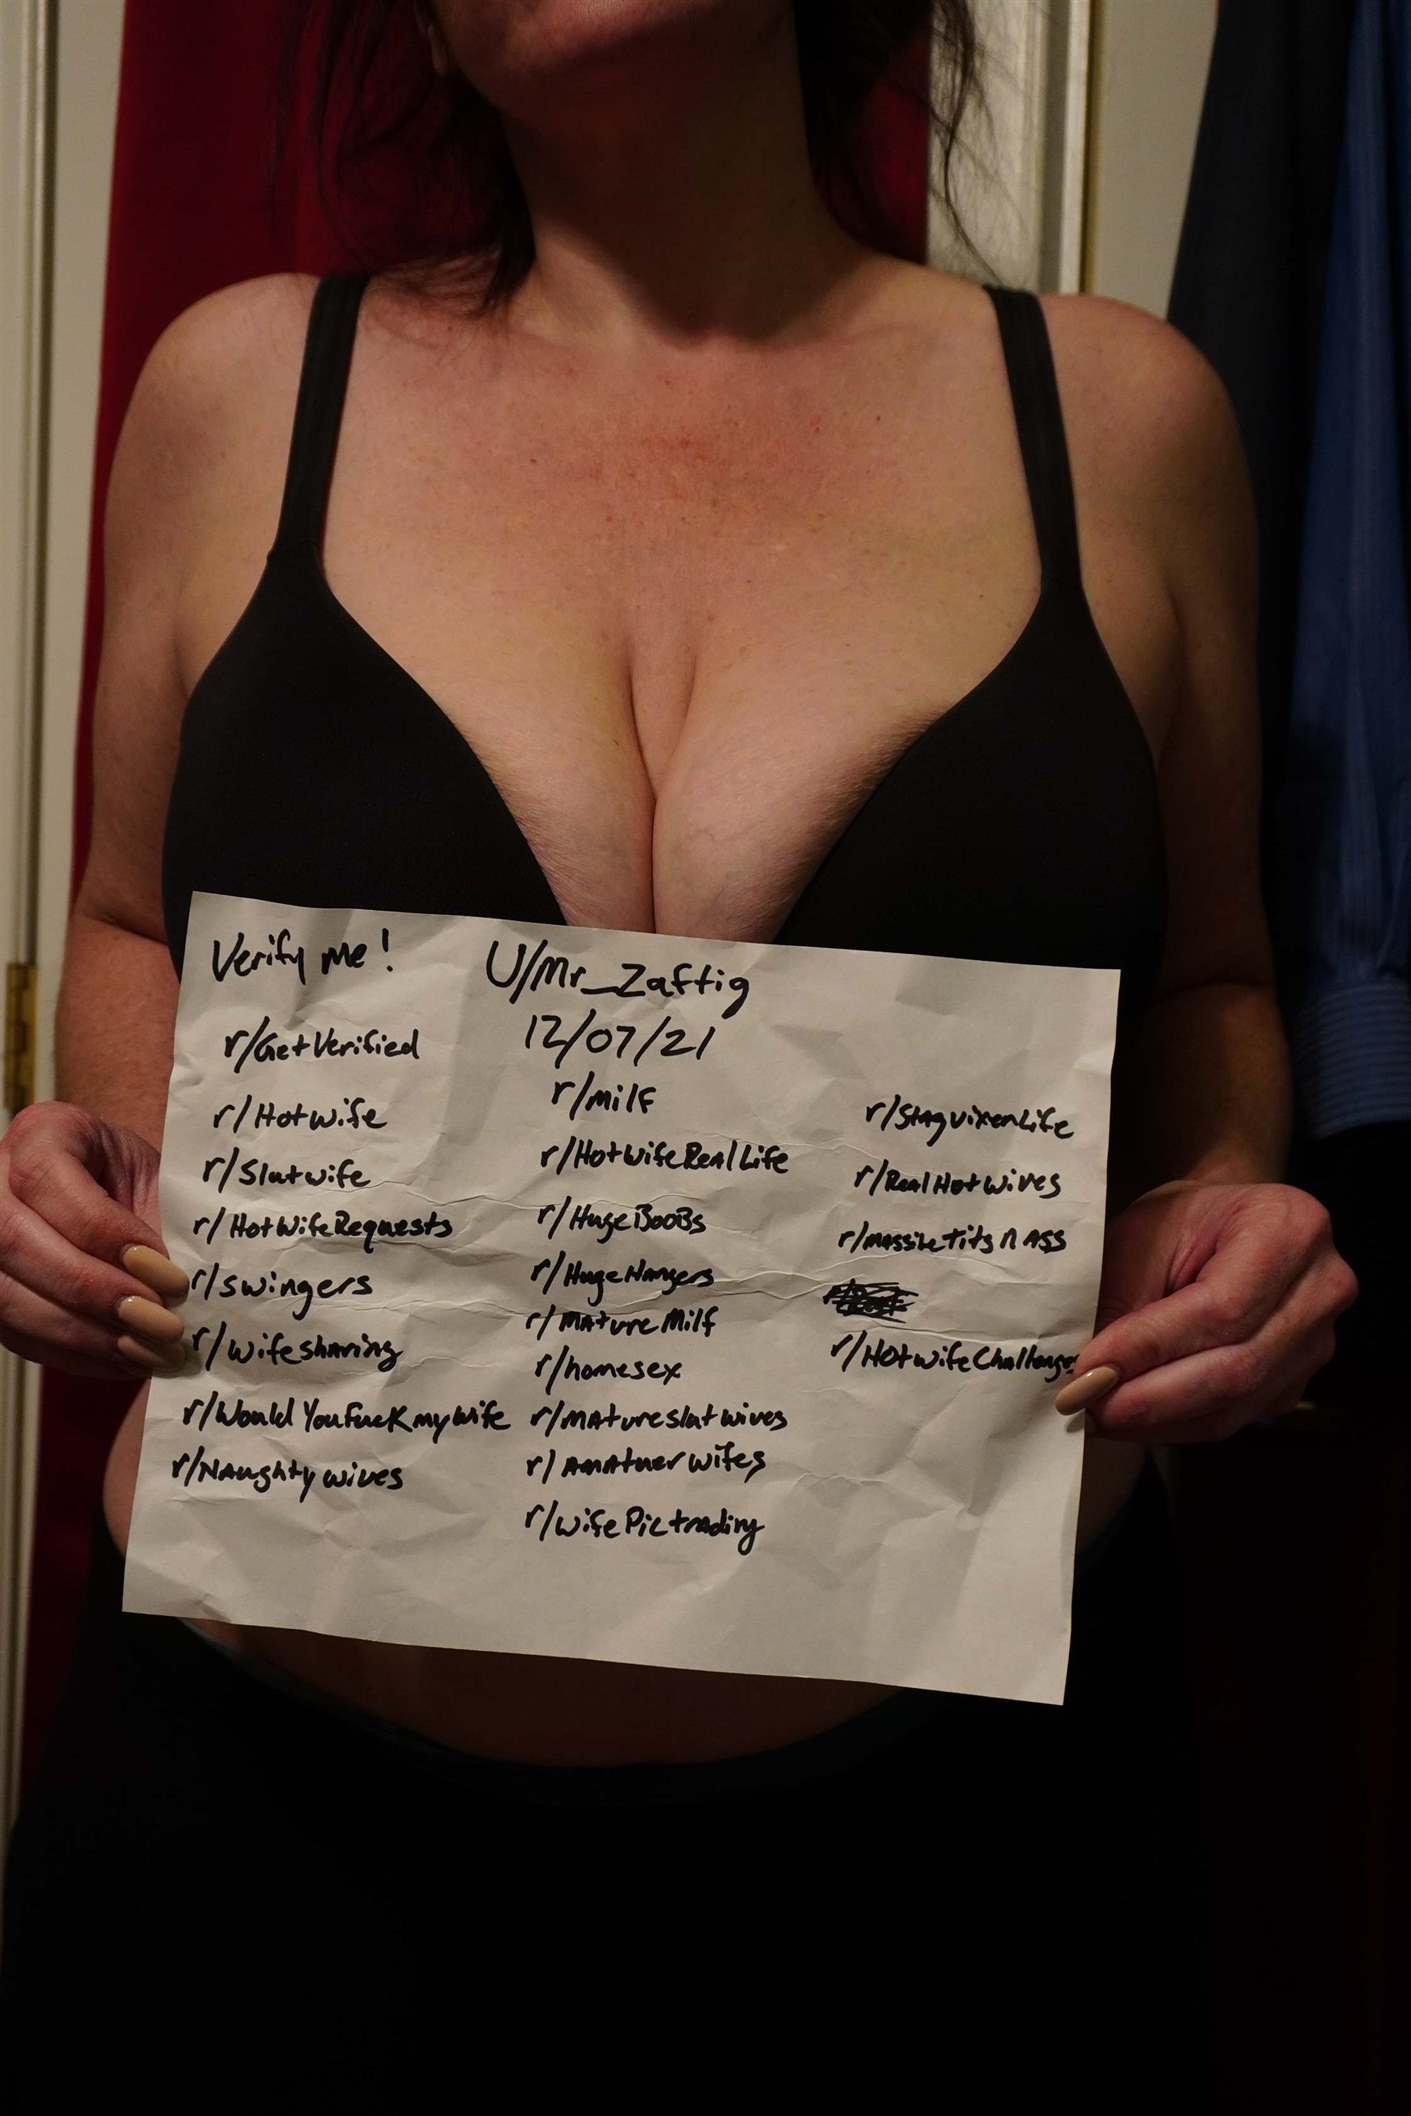 Verify me!
U/Mr_Zaftig
12/07/21
r/GetVerified
r/Hotwife
r/Slutwife
r/HotWifeRequests
r/Swingers
r/Wifesharing
r/WouldYouFuckmyWife
r/Naughtywives
r/milf
r/HotWifeRealLife
r/HugeBooBs
r/HugeHangers
r/MatureMilf
r/homesex
r/Matureslutwives
r/AmatuerWifes
r/WifePictrading
r/StagvixenLife
r/RealHotWives
r/MassiveTitsnAss
r/HotwifeChallenge